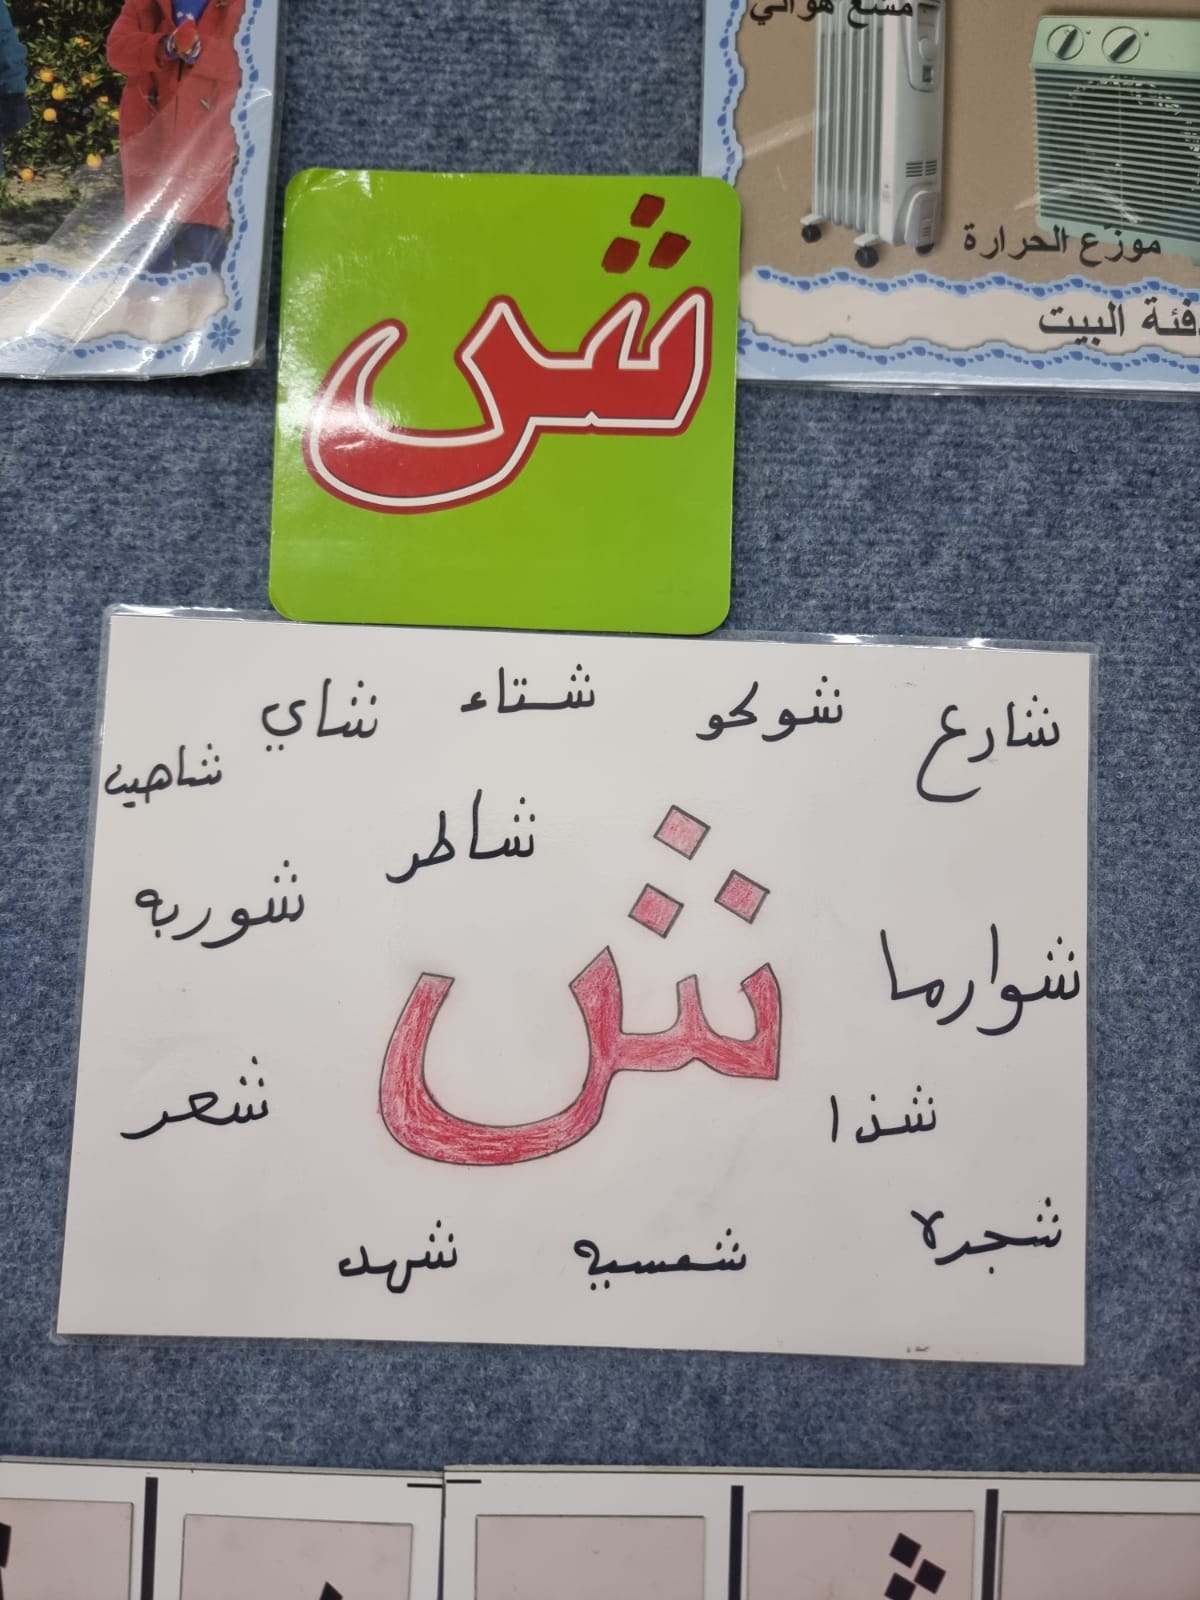 مشع هوائي
موزع الحرارة
فئة البيت
ش
شارع شوكو شتاء شاي
شاهين
شاطر
شوربه
ش
شوارما
شعر
شذا
شجره
شمسيه
شهد